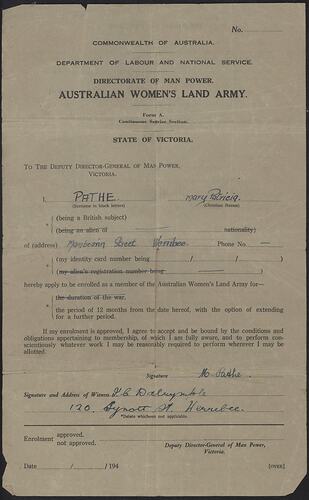 No.
COMMONWEALTH OF AUSTRALIA.
DEPARTMENT OF LABOUR AND NATIONAL SERVICE.
DIRECTORATE OF MAN POWER.
AUSTRALIAN WOMEN'S LAND ARMY.
Form A.
Continuous Service Section.
STATE OF VICTORIA.
TO THE DEPUTY DIRECTOR-GENERAL OF MAN POWER,
VICTORIA.
I, PATHE. Mary Patricia.
(Surname in block letters) (Christian Names)
(being a British subject)
* (being an alien of nationality)
of (address) Street Werribee. Phone No. —
* (my identity card number being / / )
(my alien's registration number being )
hereby apply to be enrolled as a member of the Australian Women's Land Army for—
* the duration of the war.
the period of 12 months from the date hereof, with the option of extending
for a further period.
If my enrolment is approved, I agree to accept and be bound by the conditions and
obligations appertaining to membership, of which I am fully aware, and to perform con-
scientiously whatever work I may be reasonably required to perform wherever I may be
allotted.
Signature M. Pathe.
Signature and Address of Witness F.C. Dalrymple
120. Synnot St. Werribee.
*Delete whichever not applicable.
Enrolment approved.
not approved.
Deputy Director-General of Man Power,
Victoria.
Date / /194 [OVER]